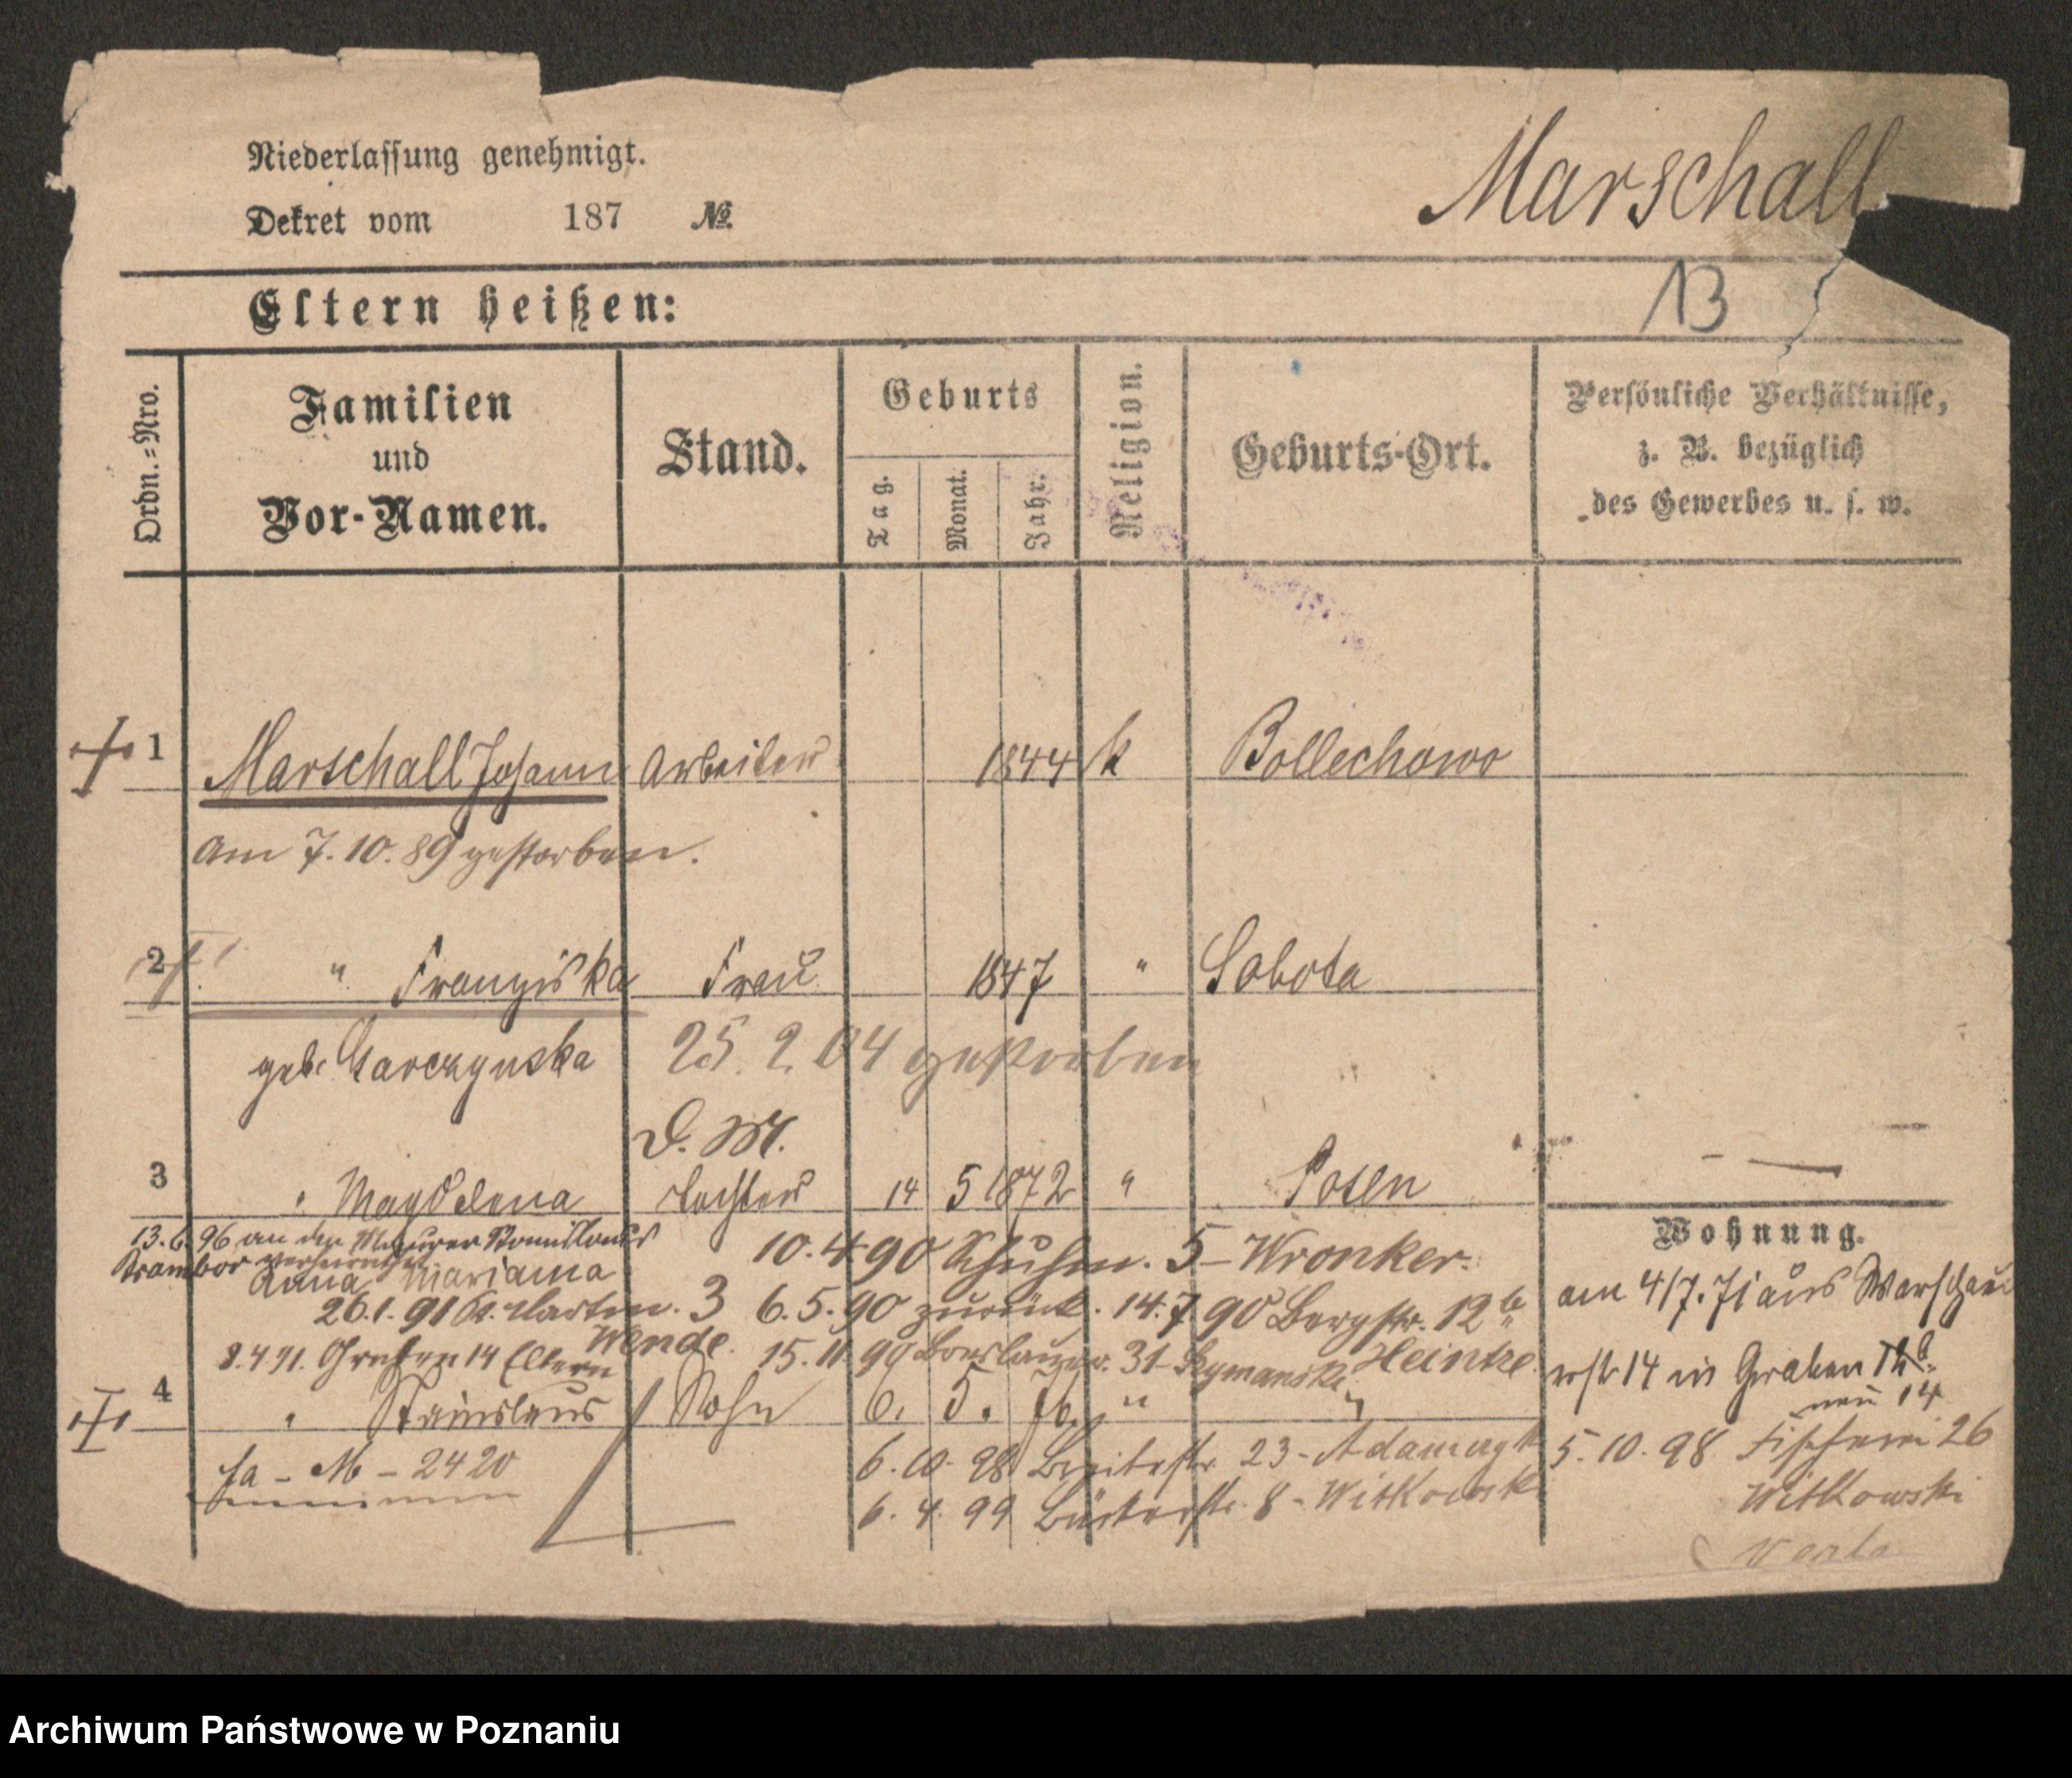 Niederlassung genehmigt.
Dekret vom 187 №
Marschall
13
Eltern heißen:
Ordn.=Nro.
Familien
und
Vor-Namen.
Stand.
Geburts
Tag.
Monat.
Jahr.
Religion.
Geburts-Ort.
Persönliche Verhältnisse,
z. B. bezüglich
des Gewerbes u. s. w.
1 Marschall Johann Arbeiter 1844 k Bollechowo
Am 7.10.89 gestorben.
2 " Franziska Frau 1847 " Sobota
geb. Garczynska 25.2.04 gestorben
D. M.
3 " Magdelena Tochter 14 5 1872 " Posen
13.6.96 an den Maurer Stanislaus
verheirathet
Anna Marianna
10.4.90 5 - Wronker.
26.1.91 St. Martin. 3 6.5.90 zurück. 14.7.90 Bergstr. 12b
Wende. 15.11.90 31 Heintze
8.4.91. Graben 14 Eltern
4 " Stanislaus Sohn 6. 5. 76. " "
Ja - M - 2420
6.10.98 Breitestr. 23 -
6.4.99 8 - Witkowski
Wohnung.
am 4/7.71 aus Warschau
14 in Graben 12b.
neu 14
5.10.98 Fischerei 26
Witkowski
Archiwum Państwowe w Poznaniu